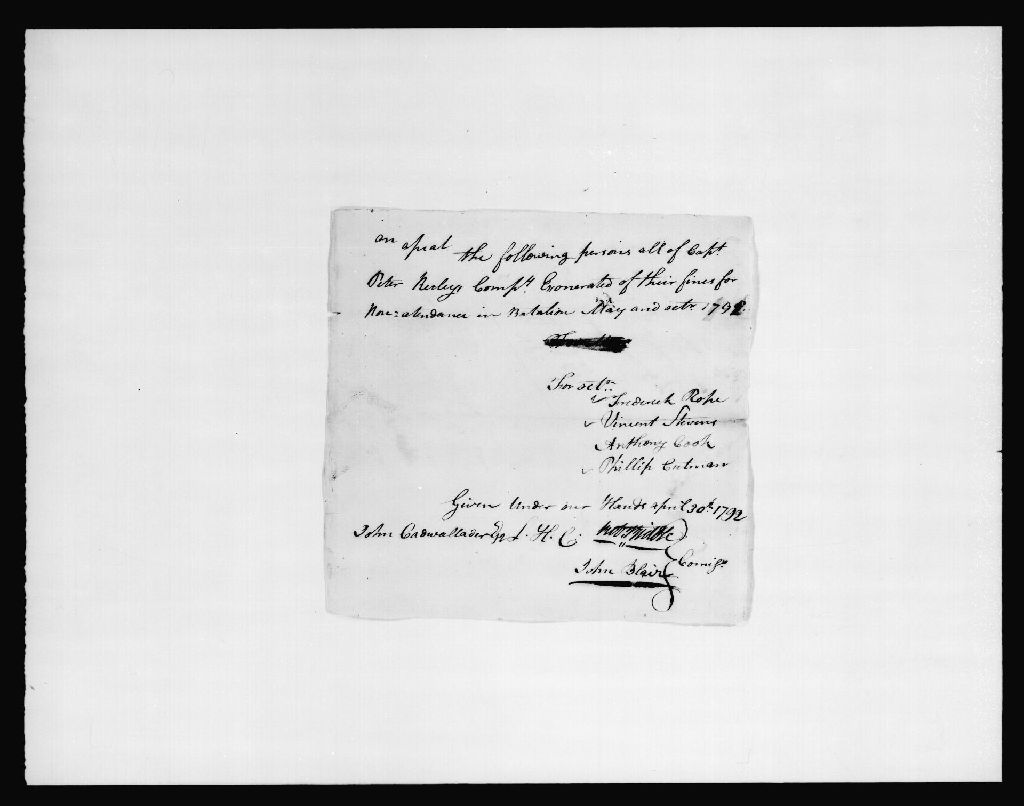 on apeal the following persons all of Capt.
Peter Nerleys Compy. Exonerated of their fines for
Non=atendance in Batalion May and octr. 1791.
For octr.
Frederick Rose
Vincent Stevens
Anthony Cook
Phillip Cutman
Given under our Hands april 30th. 1792
John Cadwallader Esqr L. H. C.
John Blair Comisr.